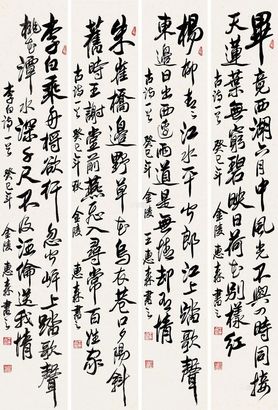 畢竟西湖六月中風光不與四時同接
天蓮葉無窮碧映日荷花別樣紅
古詩一首 癸巳年 金陵 惠森書之
楊柳青青江水平聞郎江上踏歌聲
東邊日出西邊雨道是無情却有情
古詩一首 癸巳年 金陵 王惠森書之
朱雀橋邊野草花烏衣巷口夕陽斜
舊時王謝堂前燕飛入尋常百姓家
古詩一首 癸巳年 金陵 惠森書之
李白乘舟將欲行忽聞岸上踏歌聲
桃花潭水深千尺不及汪倫送我情
李白詩一首 癸巳年 金陵 惠森書之